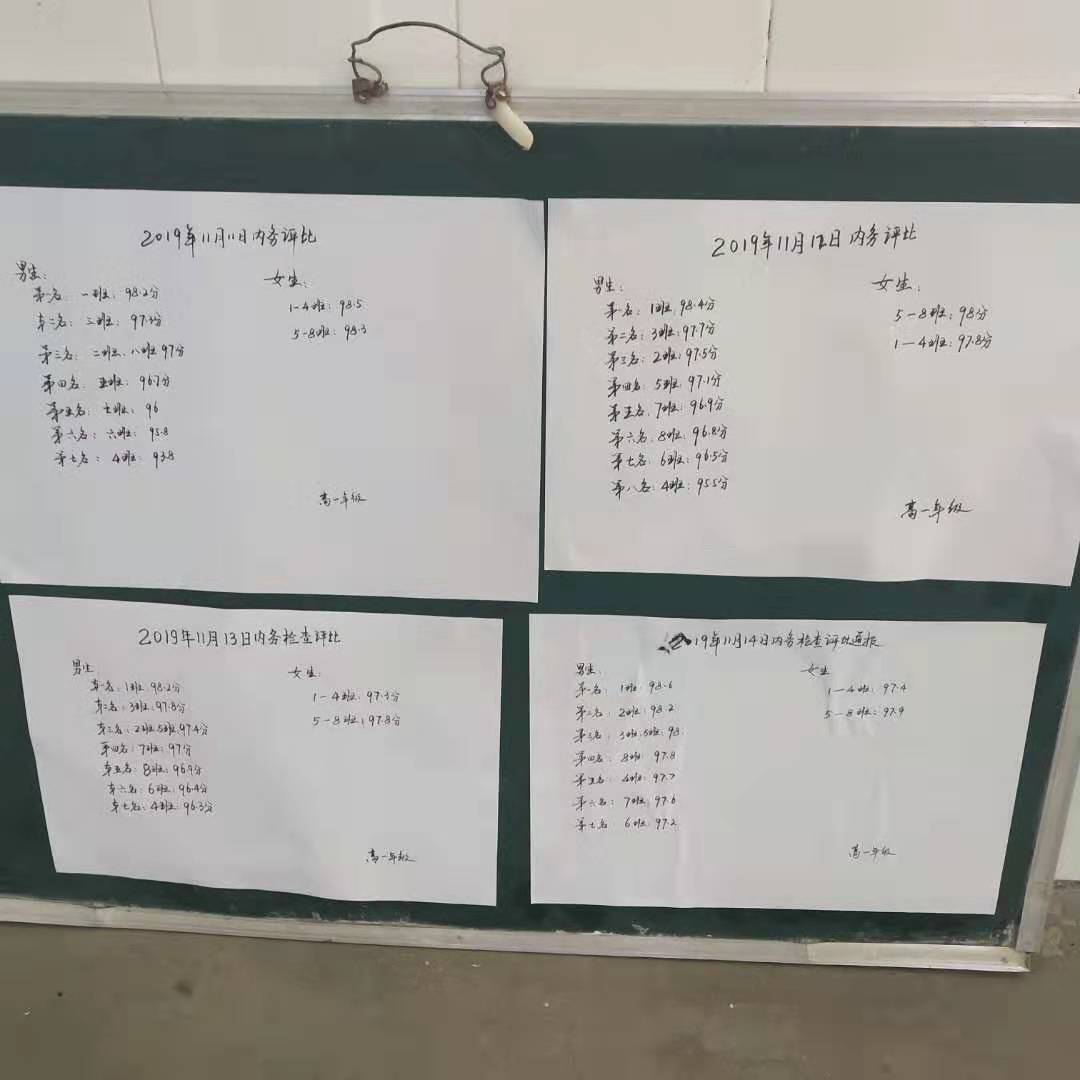 2019年11月11日内务评比
男生：
第一名：一班：98.2分
第二名：三班：
第三名：二班、八班97分
第四名：五班：96.7分
第五名：七班：96
第六名：六班：95.8
第七名：4班：93.8
女生：
1-4班：98.5
5-8班：98.3
高一年级
2019年11月12日内务评比
男生：
第一名：1班：98.4分
第二名：3班：97.7分
第三名：2班：97.5分
第四名：5班：97.1分
第五名：7班：96.9分
第六名：8班：96.8分
第七名：6班：96.5分
第八名：4班：95.5分
女生：
5-8班：98分
1-4班：97.8分
高一年级
2019年11月13日内务检查评比
男生：
第一名：1班：98.2分
第二名：3班：97.8分
第三名：2班、5班：97.4分
第四名：7班：97分
第五名：8班：96.9分
第六名：6班：96.4分
第七名：4班：96.3分
女生：
1-4班：97.3分
5-8班：97.8分
高一年级
19年11月14日内务检查评比通报
男生：
第一名：1班：98.6
第二名：2班：98.2
第三名：3班、5班：98
第四名：8班：97.8
第五名：4班：97.7
第六名：7班：97.6
第七名：6班：97.2
女生
1-4班：97.4
5-8班：97.9
高一年级